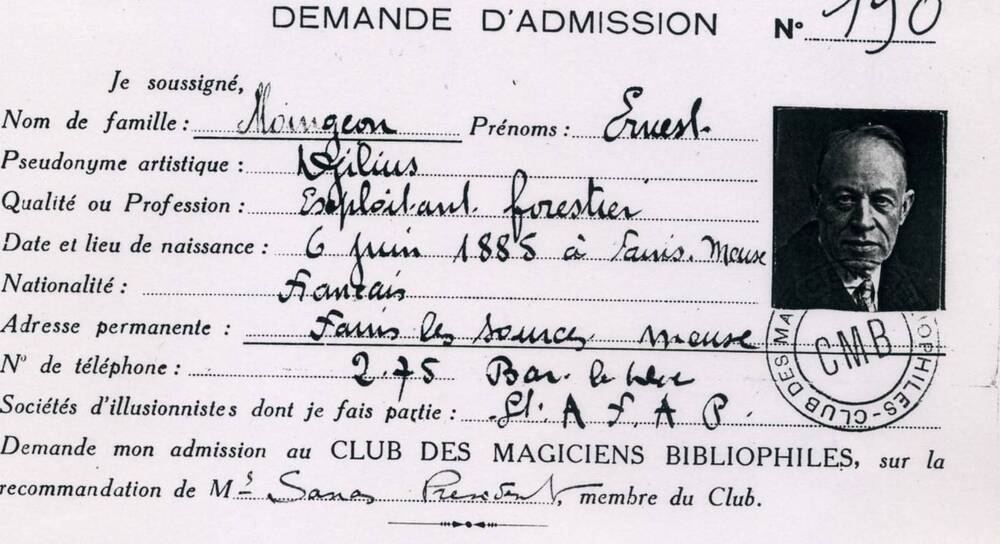 DEMANDE D'ADMISSION N° 190
Je soussigné,
Nom de famille : Moingeon Prénoms : Ernest
Pseudonyme artistique : Djilius
Qualité ou Profession : Exploitant forestier
Date et lieu de naissance : 6 Juin 1885 à Fains. Meuse
Nationalité : Français
Adresse permanente : Fains les sources meuse
N° de téléphone : 2.75 Bar. le Duc
Sociétés d'illusionnistes dont je fais partie : A F A P.
Demande mon admission au CLUB DES MAGICIENS BIBLIOPHILES, sur la
recommandation de Mrs Président, membre du Club.
CMB
OPHILES-CLUB DES MA